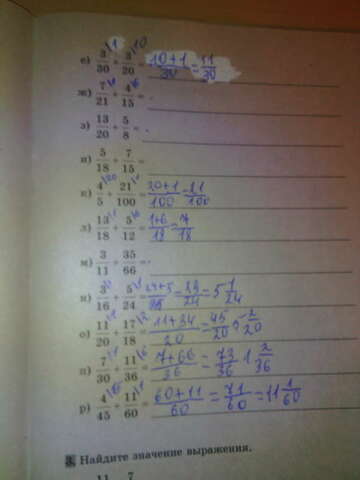 е) 3/30 + 3/20 = (10+1)/30 = 11/30
ж) 7/21 + 4/15 =
з) 13/20 + 5/8 =
и) 5/18 + 7/15 =
к) 4/5 + 21/100 = (20+1)/100 = 21/100
л) 13/18 + 5/12 = (1+6)/18 = 7/18
м) 3/11 + 35/66 =
н) 3/16 + 5/24 = = 29/24 = 5 1/24
о) 11/20 + 17/18 = (11+34)/20 = 45/20 5 2/20
п) 7/30 + 11/36 = (7+66)/36 = 73/36 1 2/36
р) 4/45 + 11/60 = (60+11)/60 = 71/60 = 11 1/60
Найдите значение выражения.
11 7